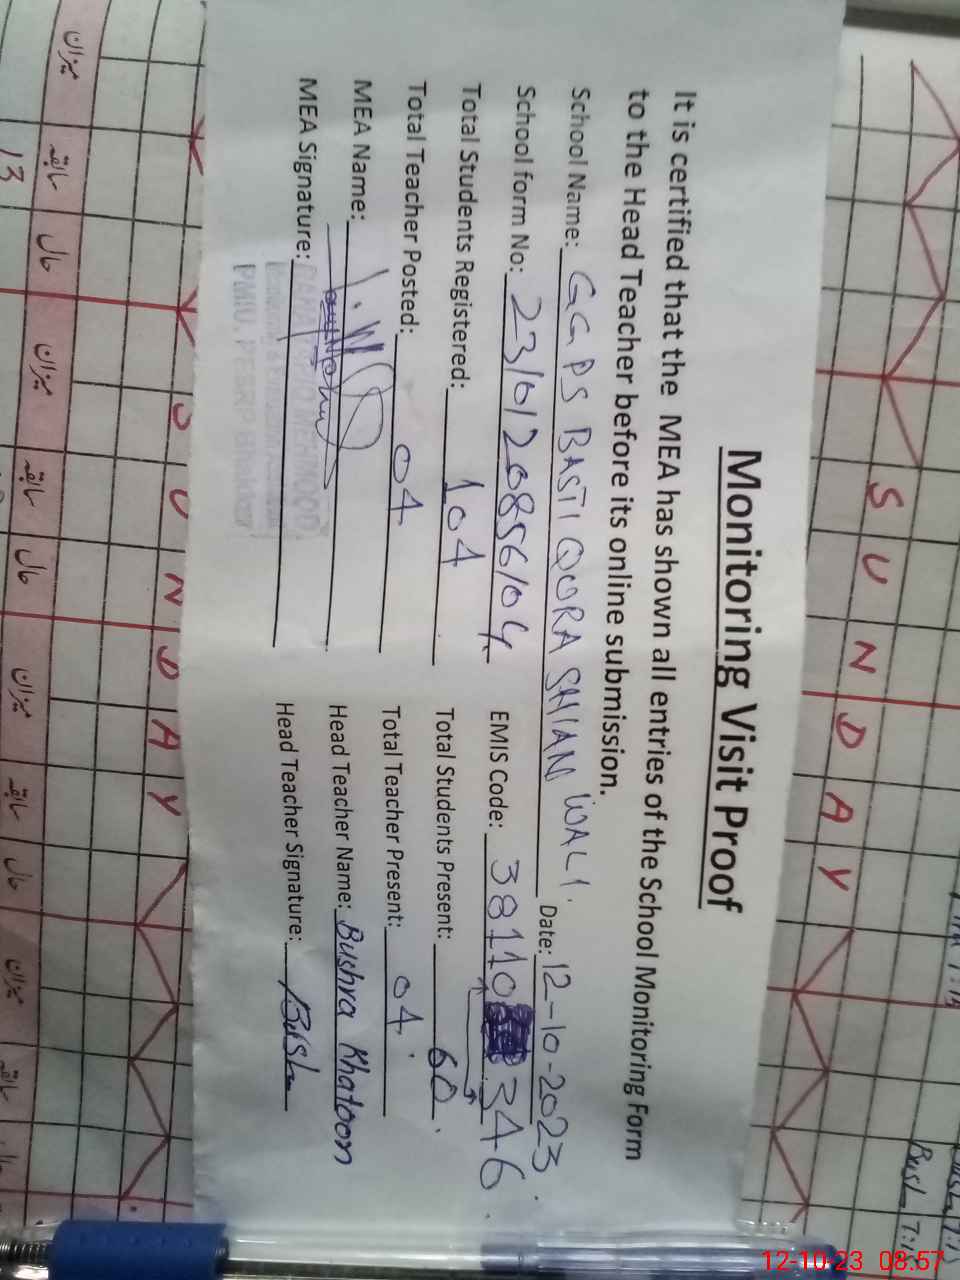 Monitoring Visit Proof
It is certified that the MEA has shown all entries of the School Monitoring Form
to the Head Teacher before its online submission.
School Name: GGPS BASTI QORA SHIAN WALI. Date: 12-10-2023.
School form No: EMIS Code: 38110346
Total Students Registered: 104 Total Students Present: 60.
Total Teacher Posted: 04 Total Teacher Present: 04.
MEA Name: Head Teacher Name: Bushra Khatoon
MEA Signature: Head Teacher Signature: Bush
PMIU, PESRP Bhakkar
SUNDAY
SUNDAY
میزان سابقہ حال میزان سابقہ حال میزان سابقہ حال میزان سابقہ
13
Bush 7:15
12-10-23 08:57